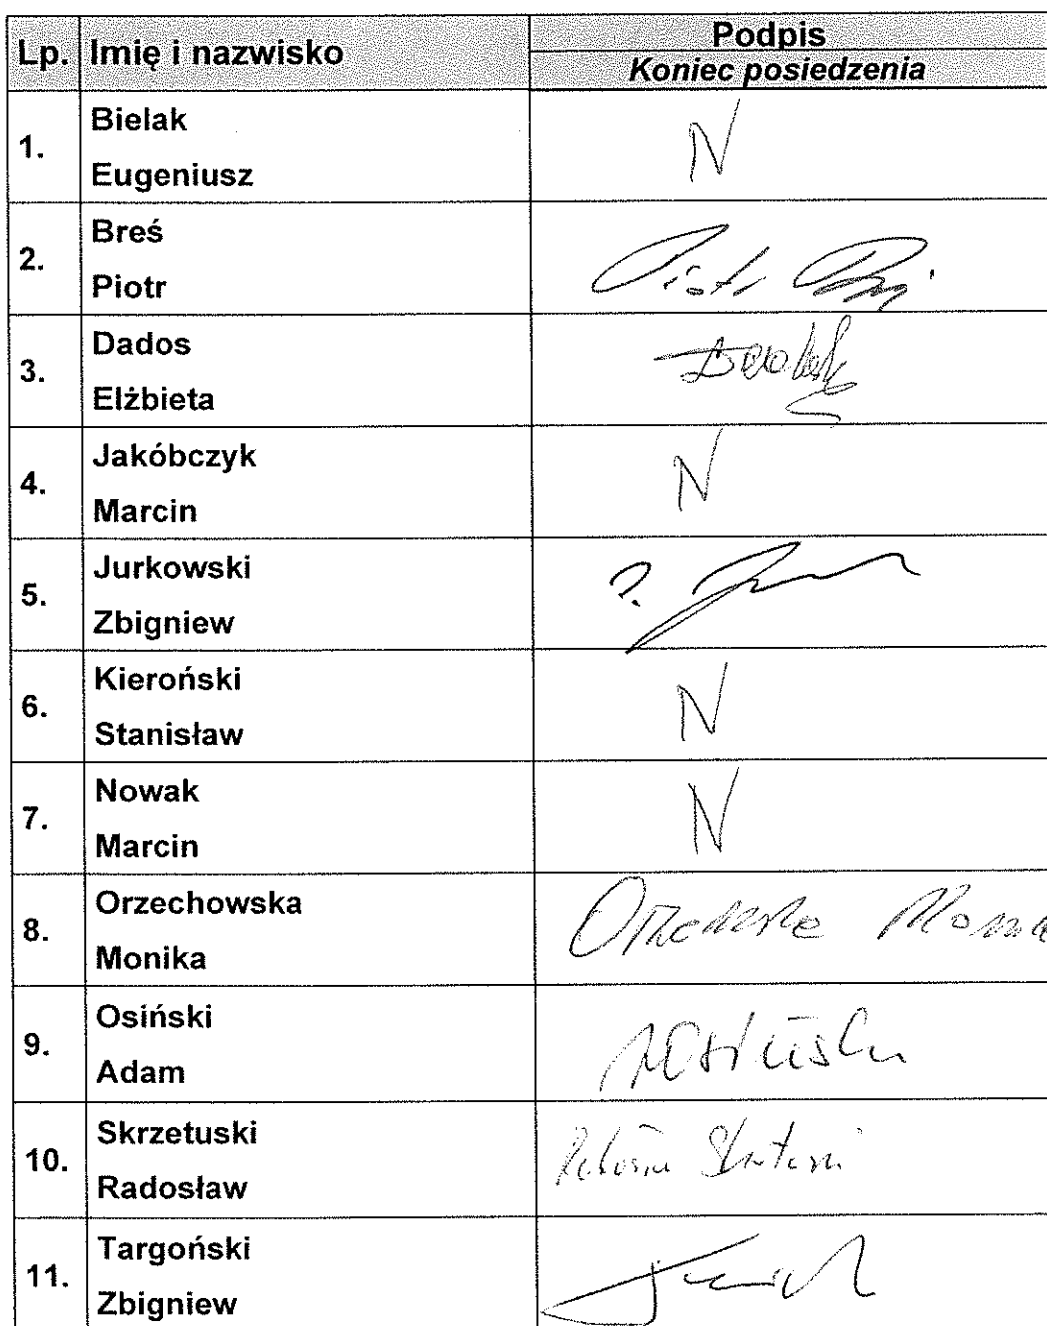 Lp. Imię i nazwisko Podpis
Koniec posiedzenia
1. Bielak
Eugeniusz
N
2. Breś
Piotr
Piotr
3. Dados
Elżbieta
4. Jakóbczyk
Marcin
N
5. Jurkowski
Zbigniew
6. Kieroński
Stanisław
N
7. Nowak
Marcin
N
8. Orzechowska
Monika
9. Osiński
Adam
10. Skrzetuski
Radosław
11. Targoński
Zbigniew